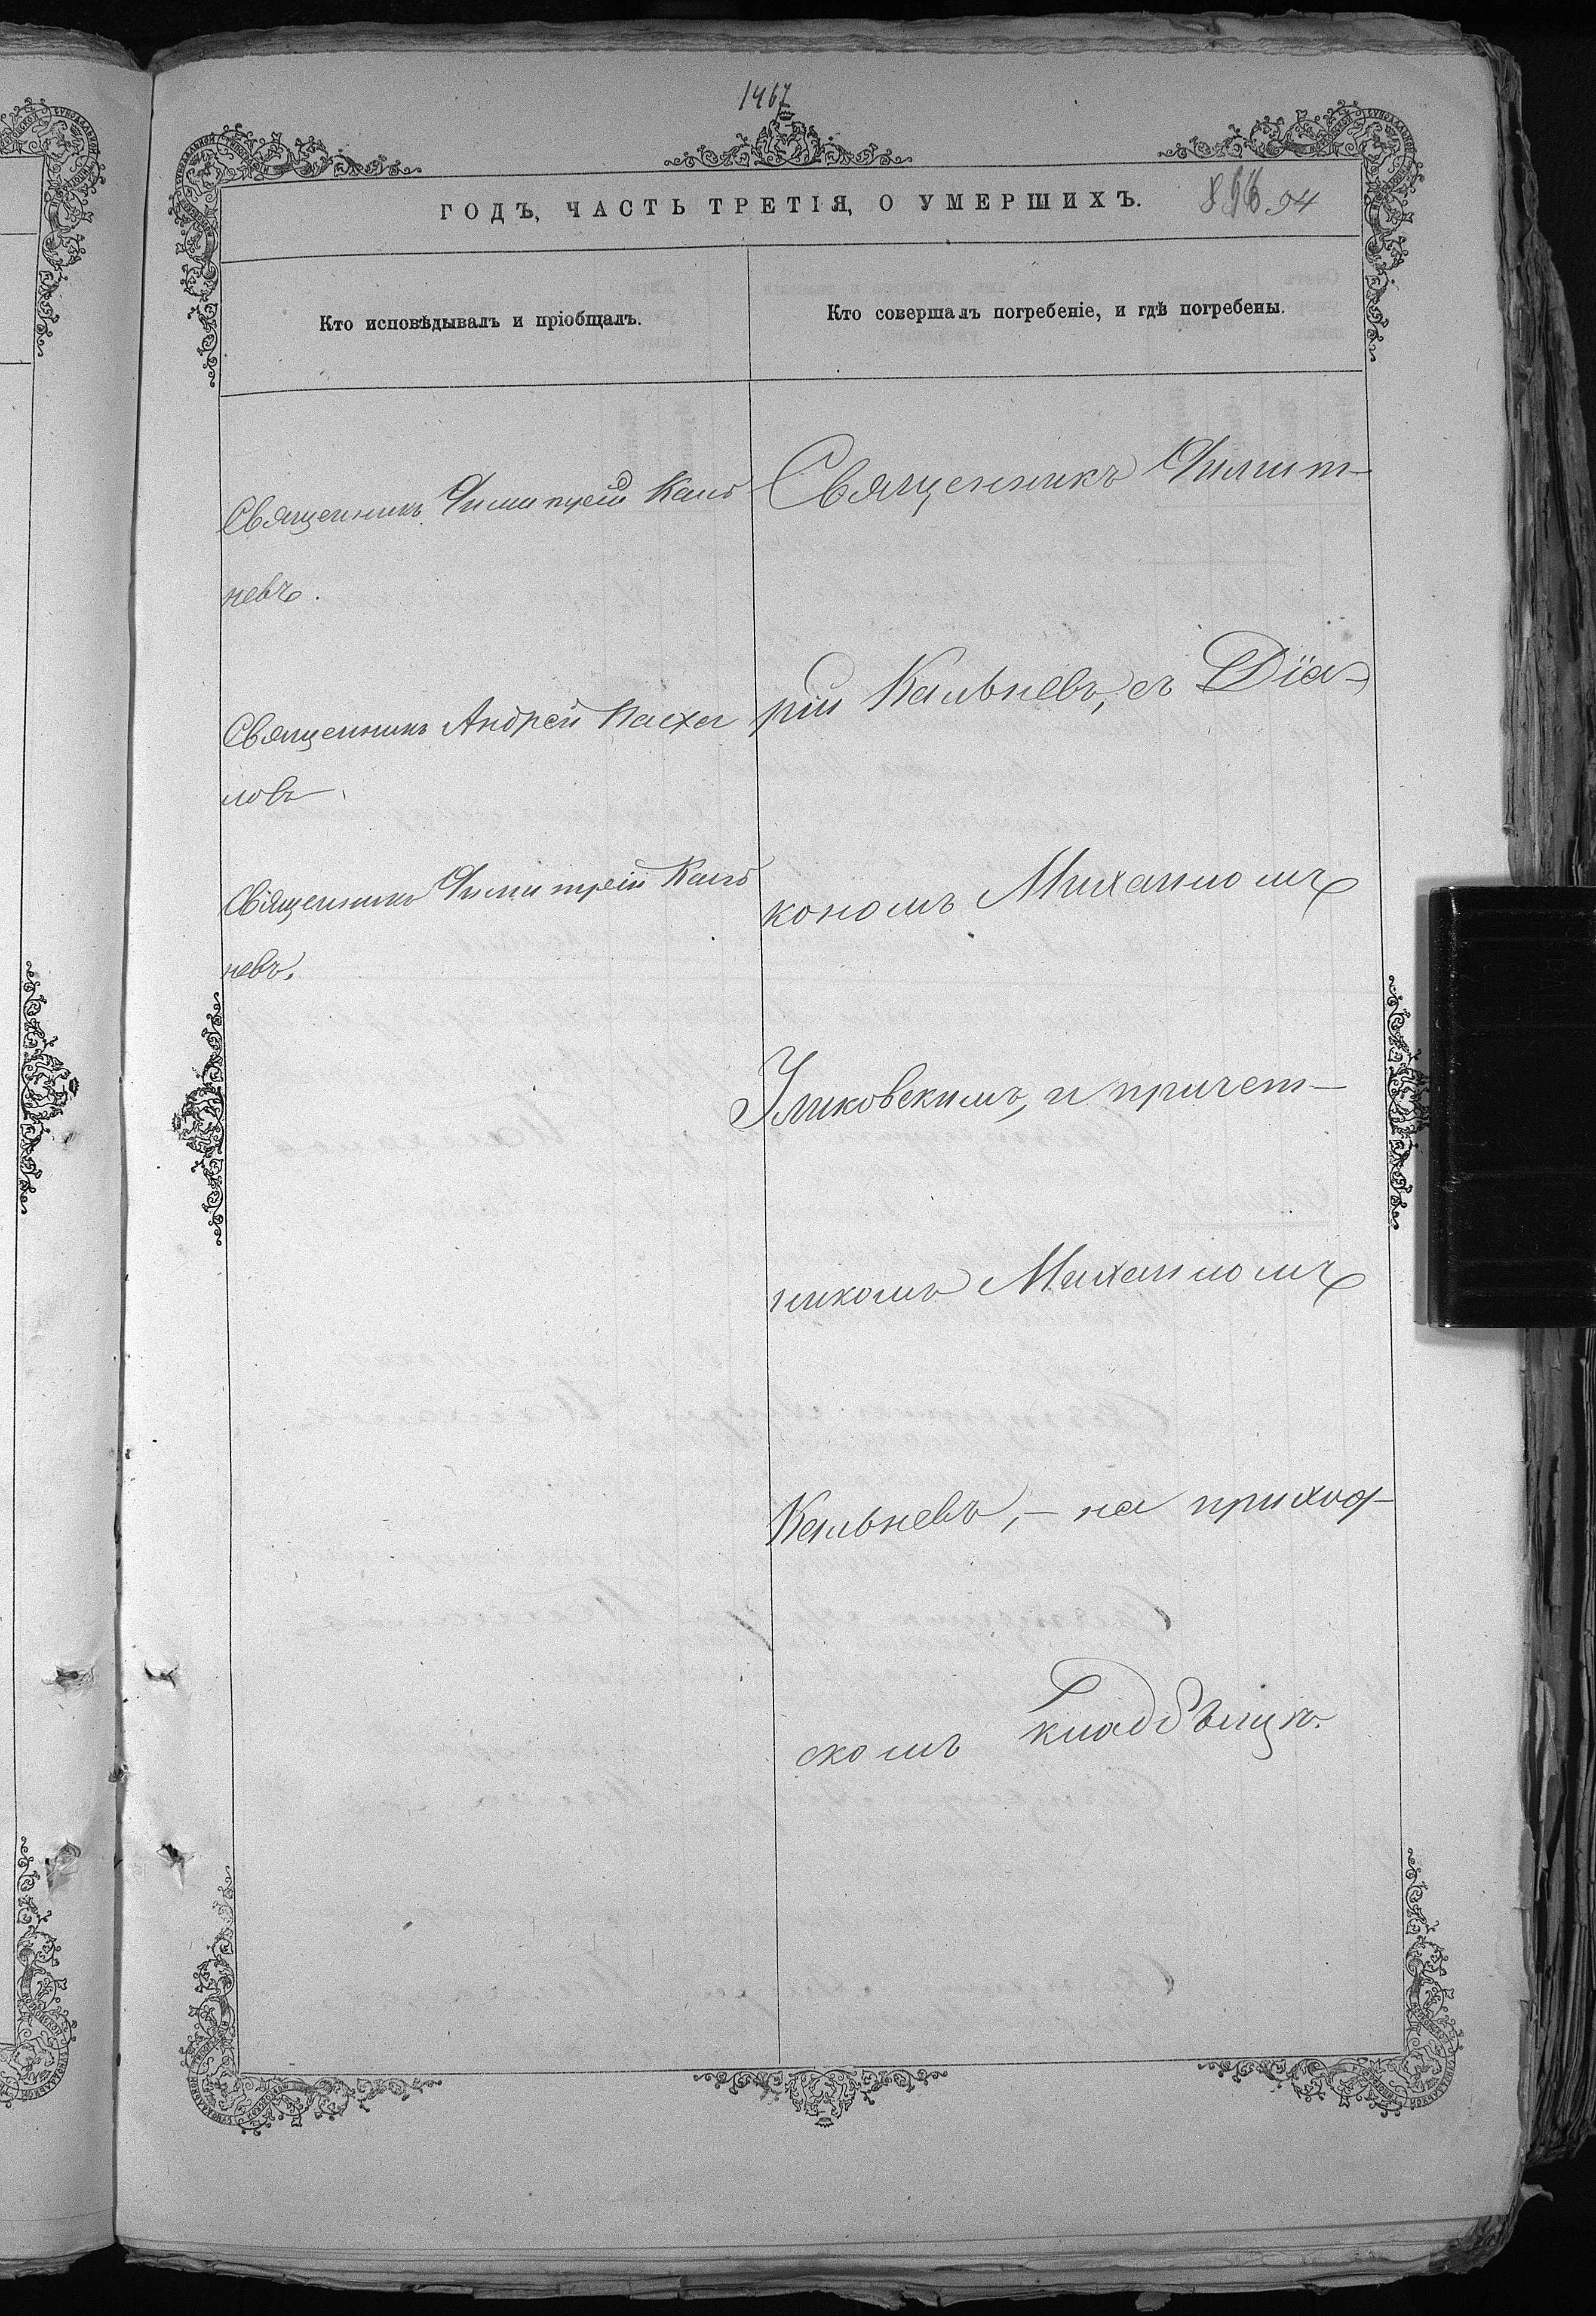 1467
ГОДЪ, ЧАСТЬ ТРЕТІЯ, О УМЕРШИХЪ.
94
Кто исповѣдывалъ и пріобщалъ.
Кто совершалъ погребеніе, и гдѣ погребены.
Священникъ Димитрій Каль
невъ.
Священникъ Андрей Пасха
ловъ
Священникъ Димитрій Каль
невъ.
Священникъ Димит-
рій Кальневъ, съ Діа-
кономъ Михаиломъ
и причет-
никомъ Михаиломъ
Кальневъ, - на приход-
скомъ кладбѣщѣ.